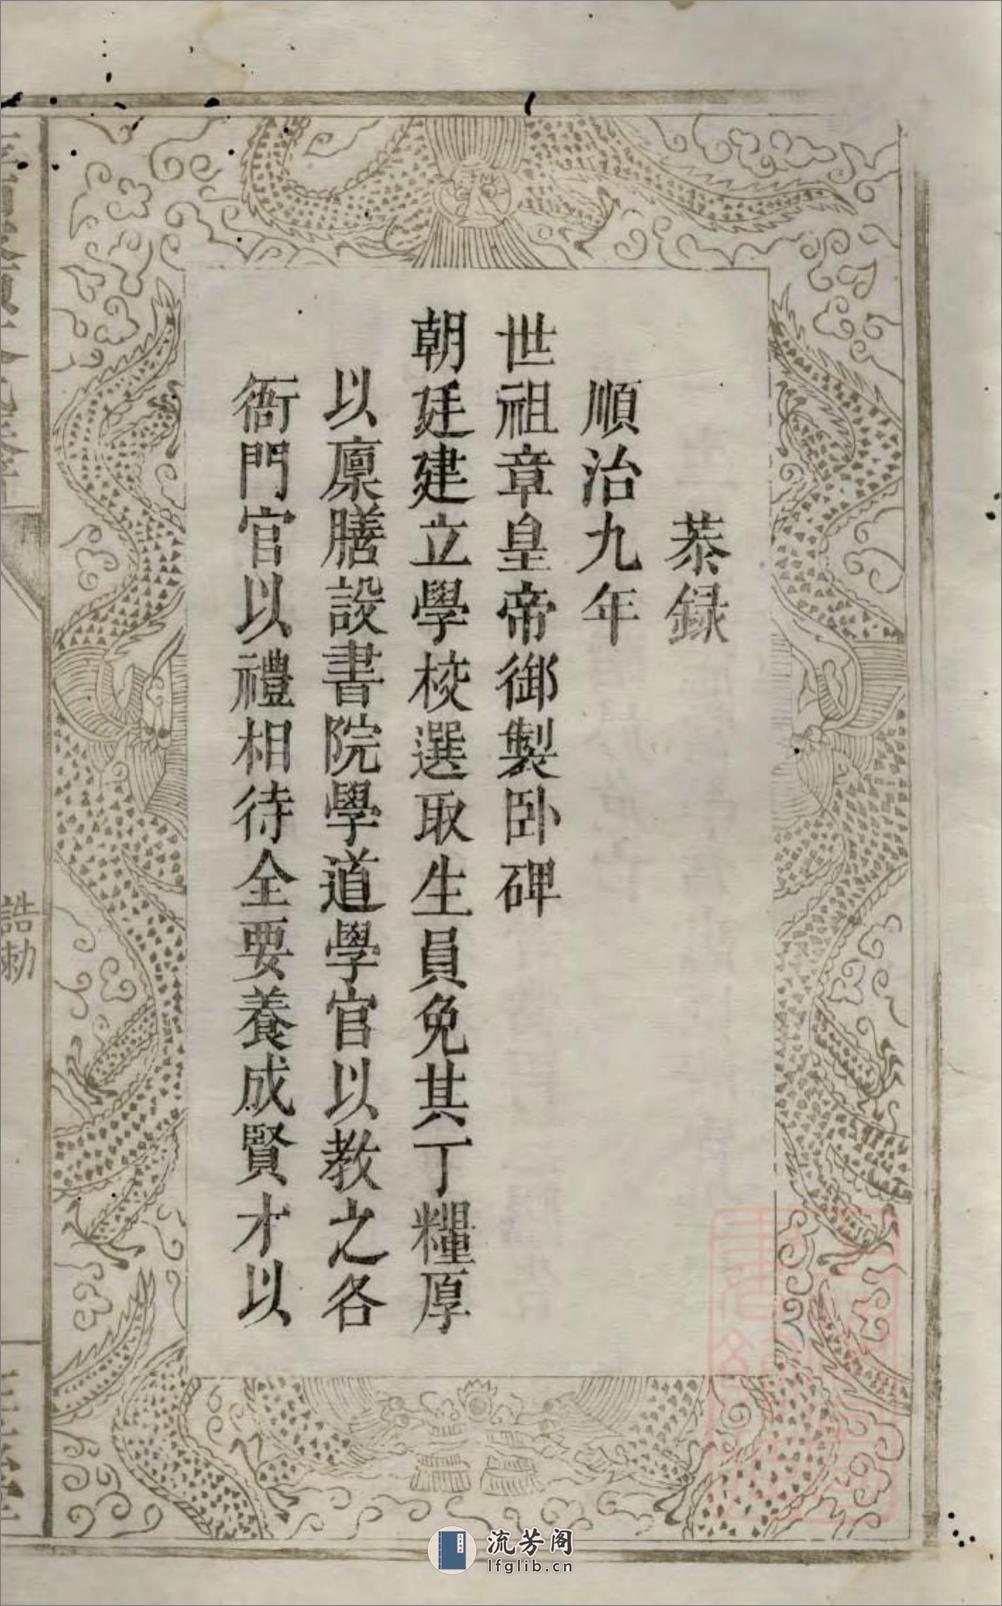 恭録
順治九年
世祖章皇帝御製卧碑
朝廷建立學校選取生員免其丁糧厚
以廪膳設書院學道學官以教之各
衙門官以禮相待全要養成賢才以
誥勅
流芳阁
lfglib.cn